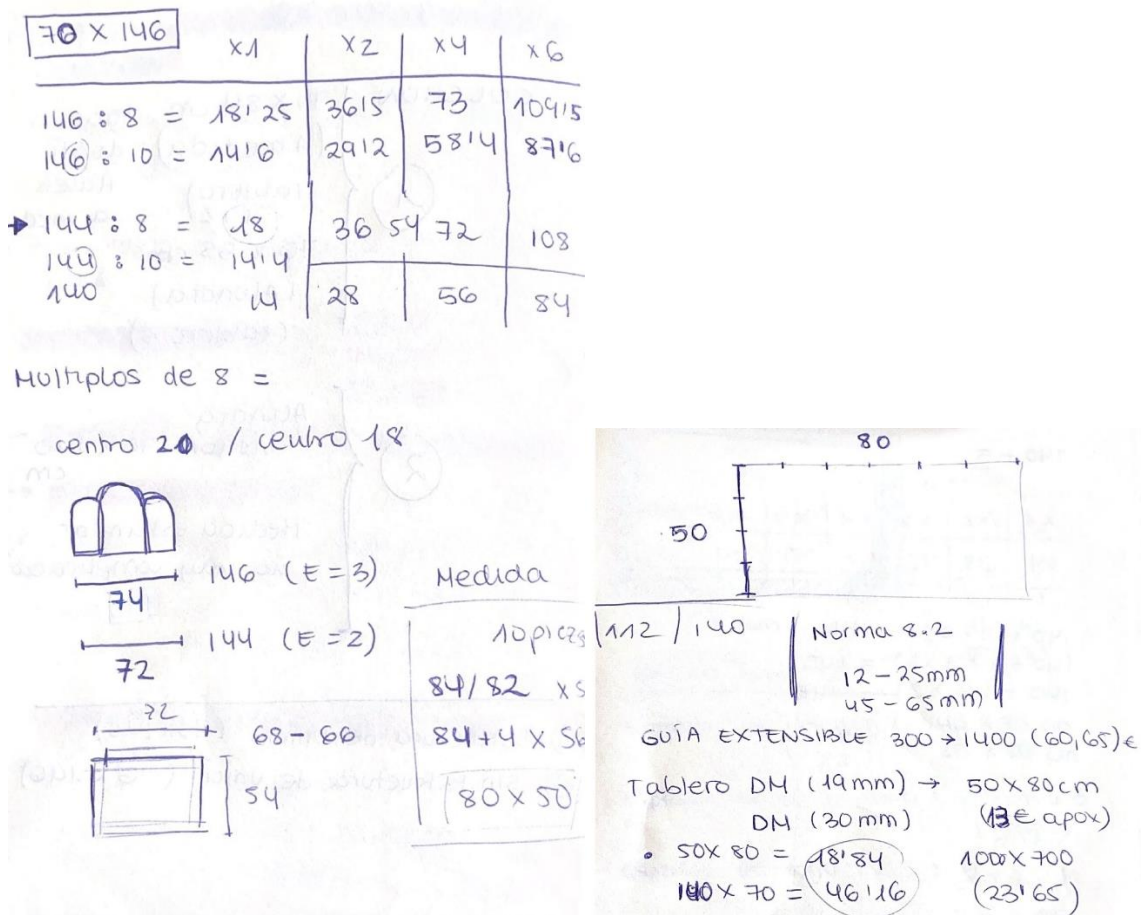 70 X 146
X1 X2 X4 X6
146 : 8 = 18'25 36'5 73 109'5
146 : 10 = 14'6 29'2 58'4 87'6
144 : 8 = 18 36 54 72 108
144 : 10 = 14'4
140 14 28 56 84
Multiplos de 8 =
centro 20 / centro 18
146 (E = 3)
74
144 (E = 2)
72
72
68 - 66
54
Medida
10 piezas
84/82 x 5
84+4 x 56
80 x 50
80
50
112 / 140
Norma 8.2
12 - 25mm
45 - 65mm
GUÍA EXTENSIBLE 300 > 1400 (60,65)€
Tablero DM (19mm) → 50x80cm
DM (30mm) (13€ apox)
• 50X 80 = 18'84 1000X 700
140X 70 = 46'16 (23'65)